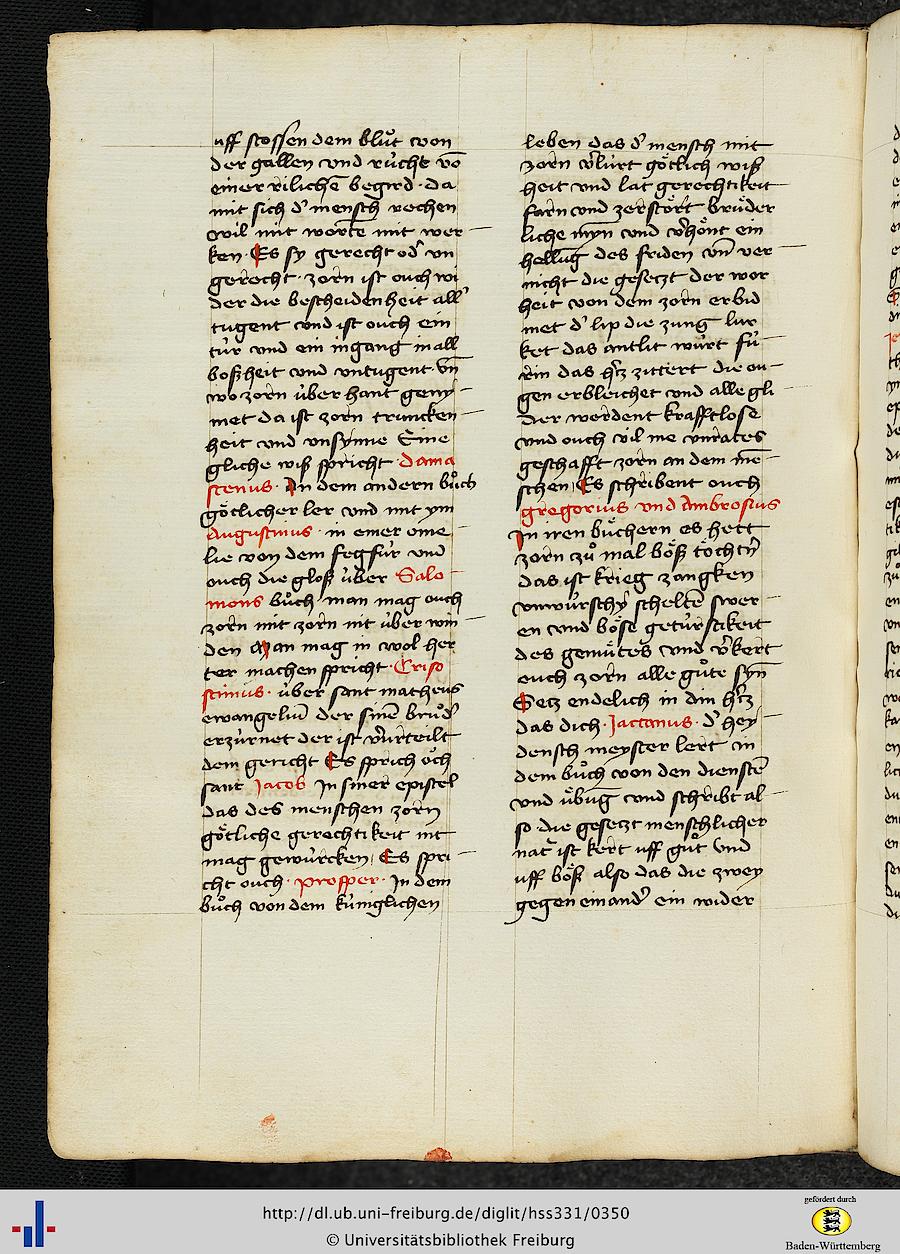 uff stossen dem blůt von
der gallen vnd rúcht võ
einer rilichẽ begird · da
mit sich d' mensch rechen
wil mit wortẽ mit wer
ken · Es sy gerecht od' vn
gerecht · zorn ist ouch wi
der die bescheidenheit all'
tugent vnd ist ouch ein
túr vnd ein ingang in all
boßheit vnd vntugent vñ
wo zorn úber hant geny
met da ist zorn truncken
heit vnd vnsynne Eine
gliche wiß spricht · dama
scenus · In dem andern bůch
götlicher ler vnd mit ym
Augustinus · in einer ome
lie von dem fegfúr vnd
ouch die gloß úber Salo
mons bůch man mag ouch
zorn mit zorn nit úber win
den Man mag in wol her
ter machen spricht · Criso
stimus · úber sant matheus
ewangeliũ der sinẽ brůd'
erzúrnet der ist v'urteilt
dem gericht Es sprich och
sant Jacob In siner epistel
das des menschen zorn
götliche gerechtikeit nit
mag gewúrcken Es spri
cht ouch · prosper · In dem
bůch von dem kúniglichen
leben das d' mensch mit
zorn v'lúrt götlich wiß
heit vnd lat gerechtikeit
farn vnd zerstört brüder
liche myn vnd v'hönt ein
hellũg des friden vñ ver
nicht die gesetzt der wor
heit von dem zorn erbid
met d' lip die zung lur
ket das antlit wúrt fú
rin das h'tz zittert die ou
gen erbleichet vnd alle gli
der werdent krafftlose
vnd ouch vil me vnrates
geschafft zorn an dem mẽ
schen Es schribent ouch
gregorius vnd Ambrosius
In iren büchern es hett
zorn zů mal böß töcht'n
das ist krieg zangken
vnwúrschy scheltẽ swer
en vnd böse getúrstikeit
des gemütes vnd v'kert
ouch zorn alle gůte syñ
Setz endelich in din h'tz
das dich · Jactanus · d' hey
densch meyster lert in
dem bůch von den dienstẽ
vnd übũg vnd schribt al
so · die gesetzt menschlicher
nat' ist kert uff gut vnd
uff böß also das die zwey
gegen einand' ein wider
http://dl.ub.uni-freiburg.de/diglit/hss331/0350
© Universitätsbibliothek Freiburg
gefördert durch
Baden-Württemberg